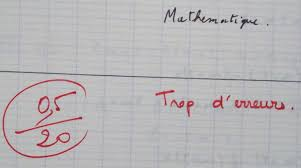 Mathematique.
0,5 Trop d'erreurs.
20